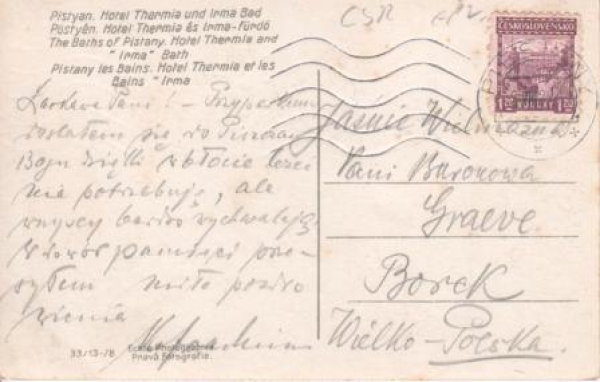 Pistyan. Hotel Thermia und Irma Bad
Pöstyén. Hotel Thermia és Irma-fürdő
The Baths of Pistany. Hotel Thermia and
"Irma" Bath
Pistany les Bains. Hotel Thermia et les
Bains "Irma"
ČSR
ČESKOSLOVENSKO
1.20 KORUNY 1.20
Łaskawa Pani! – Przypadkiem
dostałem się do Piszczan
Bogu dzięki błocie
nie potrzebuję, ale
wszyscy bardzo wychwalają
W dowód pamięci prze-
syłam miłe pozdro
wienia
Jaśnie Wielmożna
Pani Baronowa
Graeve
Borek
Wielko-Polska.
33/13-/8
Pravá Fotografie.